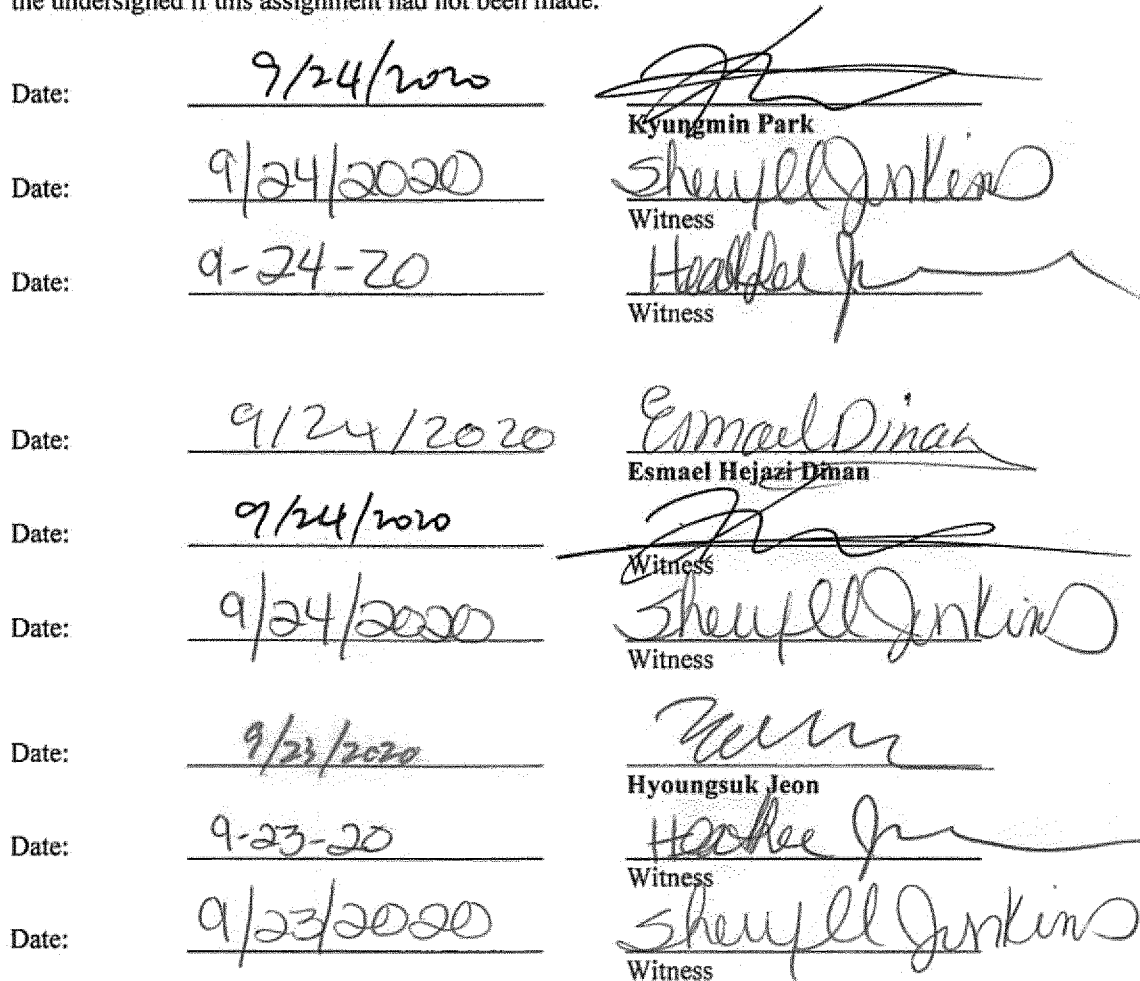 the undersigned if this assignment had not been made.
Date: 9/24/2020
Kyungmin Park
Date: 9/24/2020 Sheryll Jenkins
Witness
Date: 9-24-20 Heather
Witness
Date: 9/24/2020 Esmael Dinan
Esmael Hejazi Dinan
Date: 9/24/2020
Witness
Date: 9/24/2020 Sheryll Jenkins
Witness
Date: 9/23/2020
Hyoungsuk Jeon
Date: 9-23-20 Heather
Witness
Date: 9/23/2020 Sheryll Jenkins
Witness